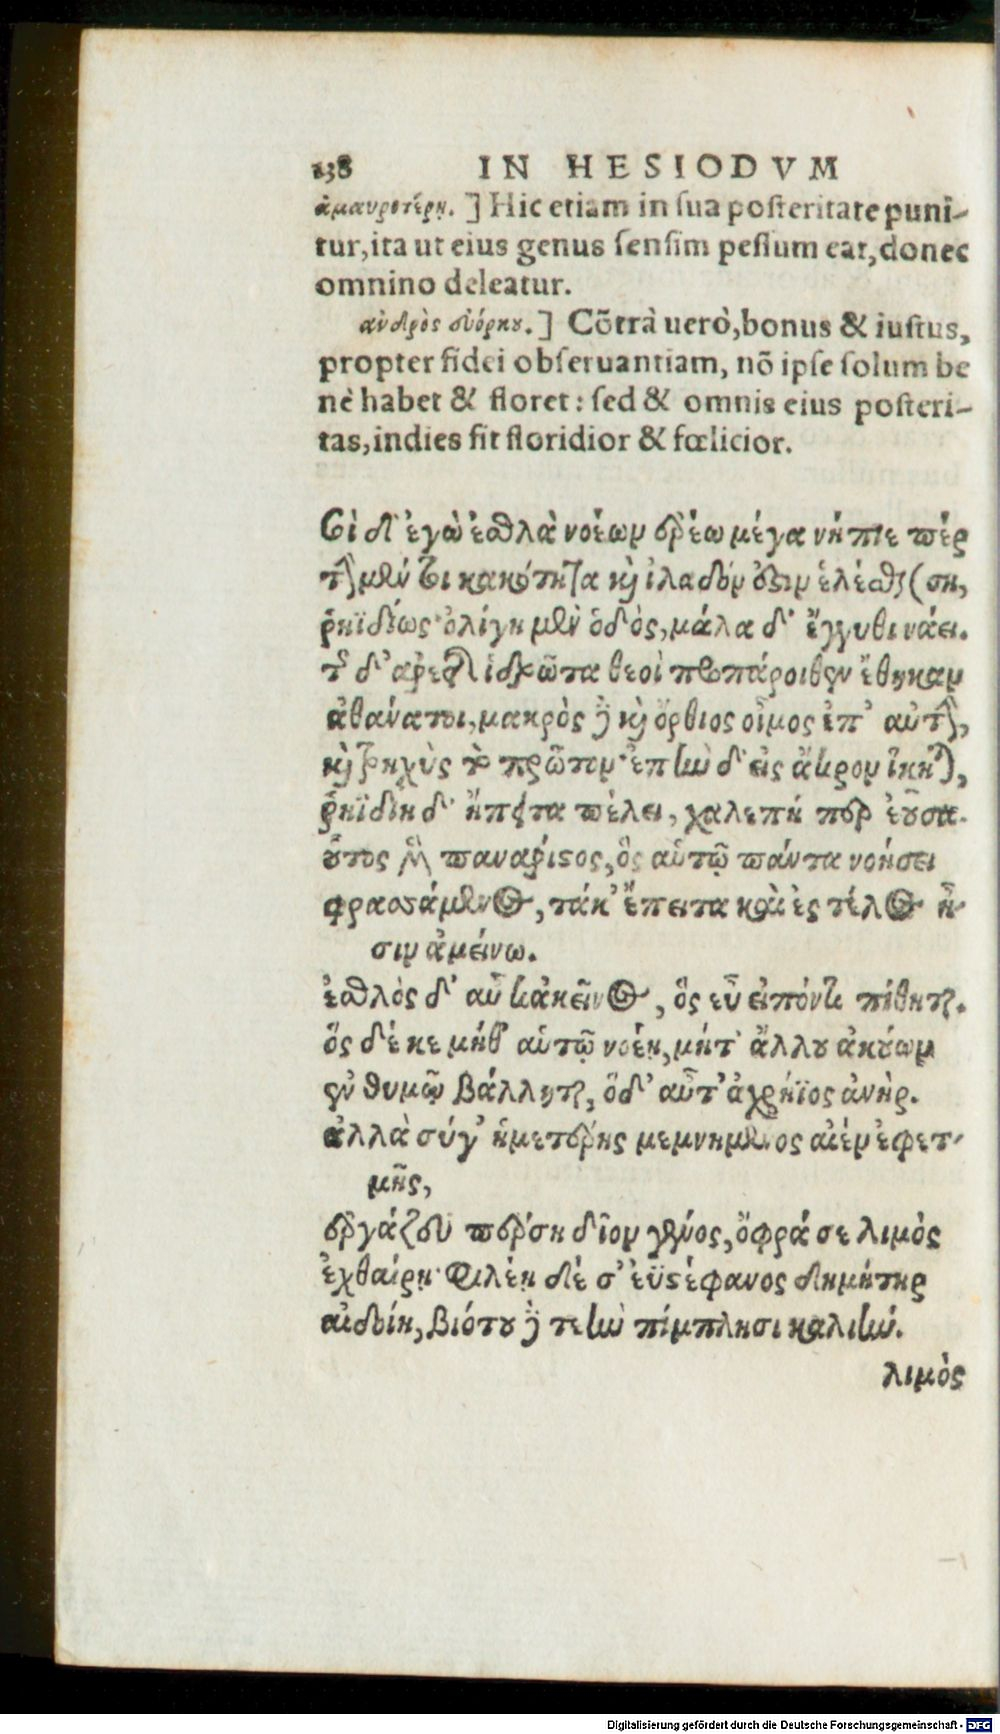 138 IN HESIODVM
ἀμαυροτέρη.] Hic etiam in sua posteritate puni-
tur, ita ut eius genus sensim pessum eat, donec
omnino deleatur.
ἀνδρὸς εὐόρκου.] Cõtrà uerò, bonus & iustus,
propter fidei obseruantiam, nõ ipse solum be
nè habet & floret: sed & omnis eius posteri-
tas, indies fit floridior & fœlicior.
Σοὶ δ' ἐγὼ ἐσθλὰ νοέων ἐρέω μέγα νήπιε πέρ
τὴν μέν τοι κακότητα καὶ ἰλαδόν ἐστιν ἑλέσθαι
ῥηϊδίως· ὀλίγη μὲν ὁδὸς, μάλα δ' ἔγγυθι ναίει.
τῆς δ' ἀρετῆς ἱδρῶτα θεοὶ προπάροιθεν ἔθηκαν
ἀθάνατοι, μακρὸς δὲ καὶ ὄρθιος οἶμος ἐπ' αὐτὴν,
καὶ τρηχὺς τὸ πρῶτον· ἐπὴν δ' εἰς ἄκρον ἵκηται,
ῥηϊδίη δ' ἤπειτα πέλει, χαλεπή περ ἐοῦσα.
οὗτος μὲν παναρίστος, ὃς αὑτῷ πάντα νοήσει
φρασσάμενος, τά κ' ἔπειτα καὶ ἐς τέλος ᾖ-
σιν ἀμείνω.
ἐσθλὸς δ' αὖ κἀκεῖνος, ὃς εὖ εἰπόντι πίθηται.
ὃς δέ κε μήθ' αὑτῷ νοέῃ, μήτ' ἄλλου ἀκούων
ἐν θυμῷ βάλληται, ὃ δ' αὖτ' ἀχρήϊος ἀνὴρ.
ἀλλὰ σύγ' ἡμετέρης μεμνημένος αἰὲν ἐφετ-
μῆς,
ἐργάζευ πέρση δῖον γένος, ὄφρά σε λιμὸς
ἐχθαίρῃ· φιλέῃ δέ σ' ἐϋστέφανος δημήτηρ
αἰδοίη, βιότου δὲ τεὴν πίμπλησι καλιήν.
λιμὸς
Digitalisierung gefördert durch die Deutsche Forschungsgemeinschaft - DFG